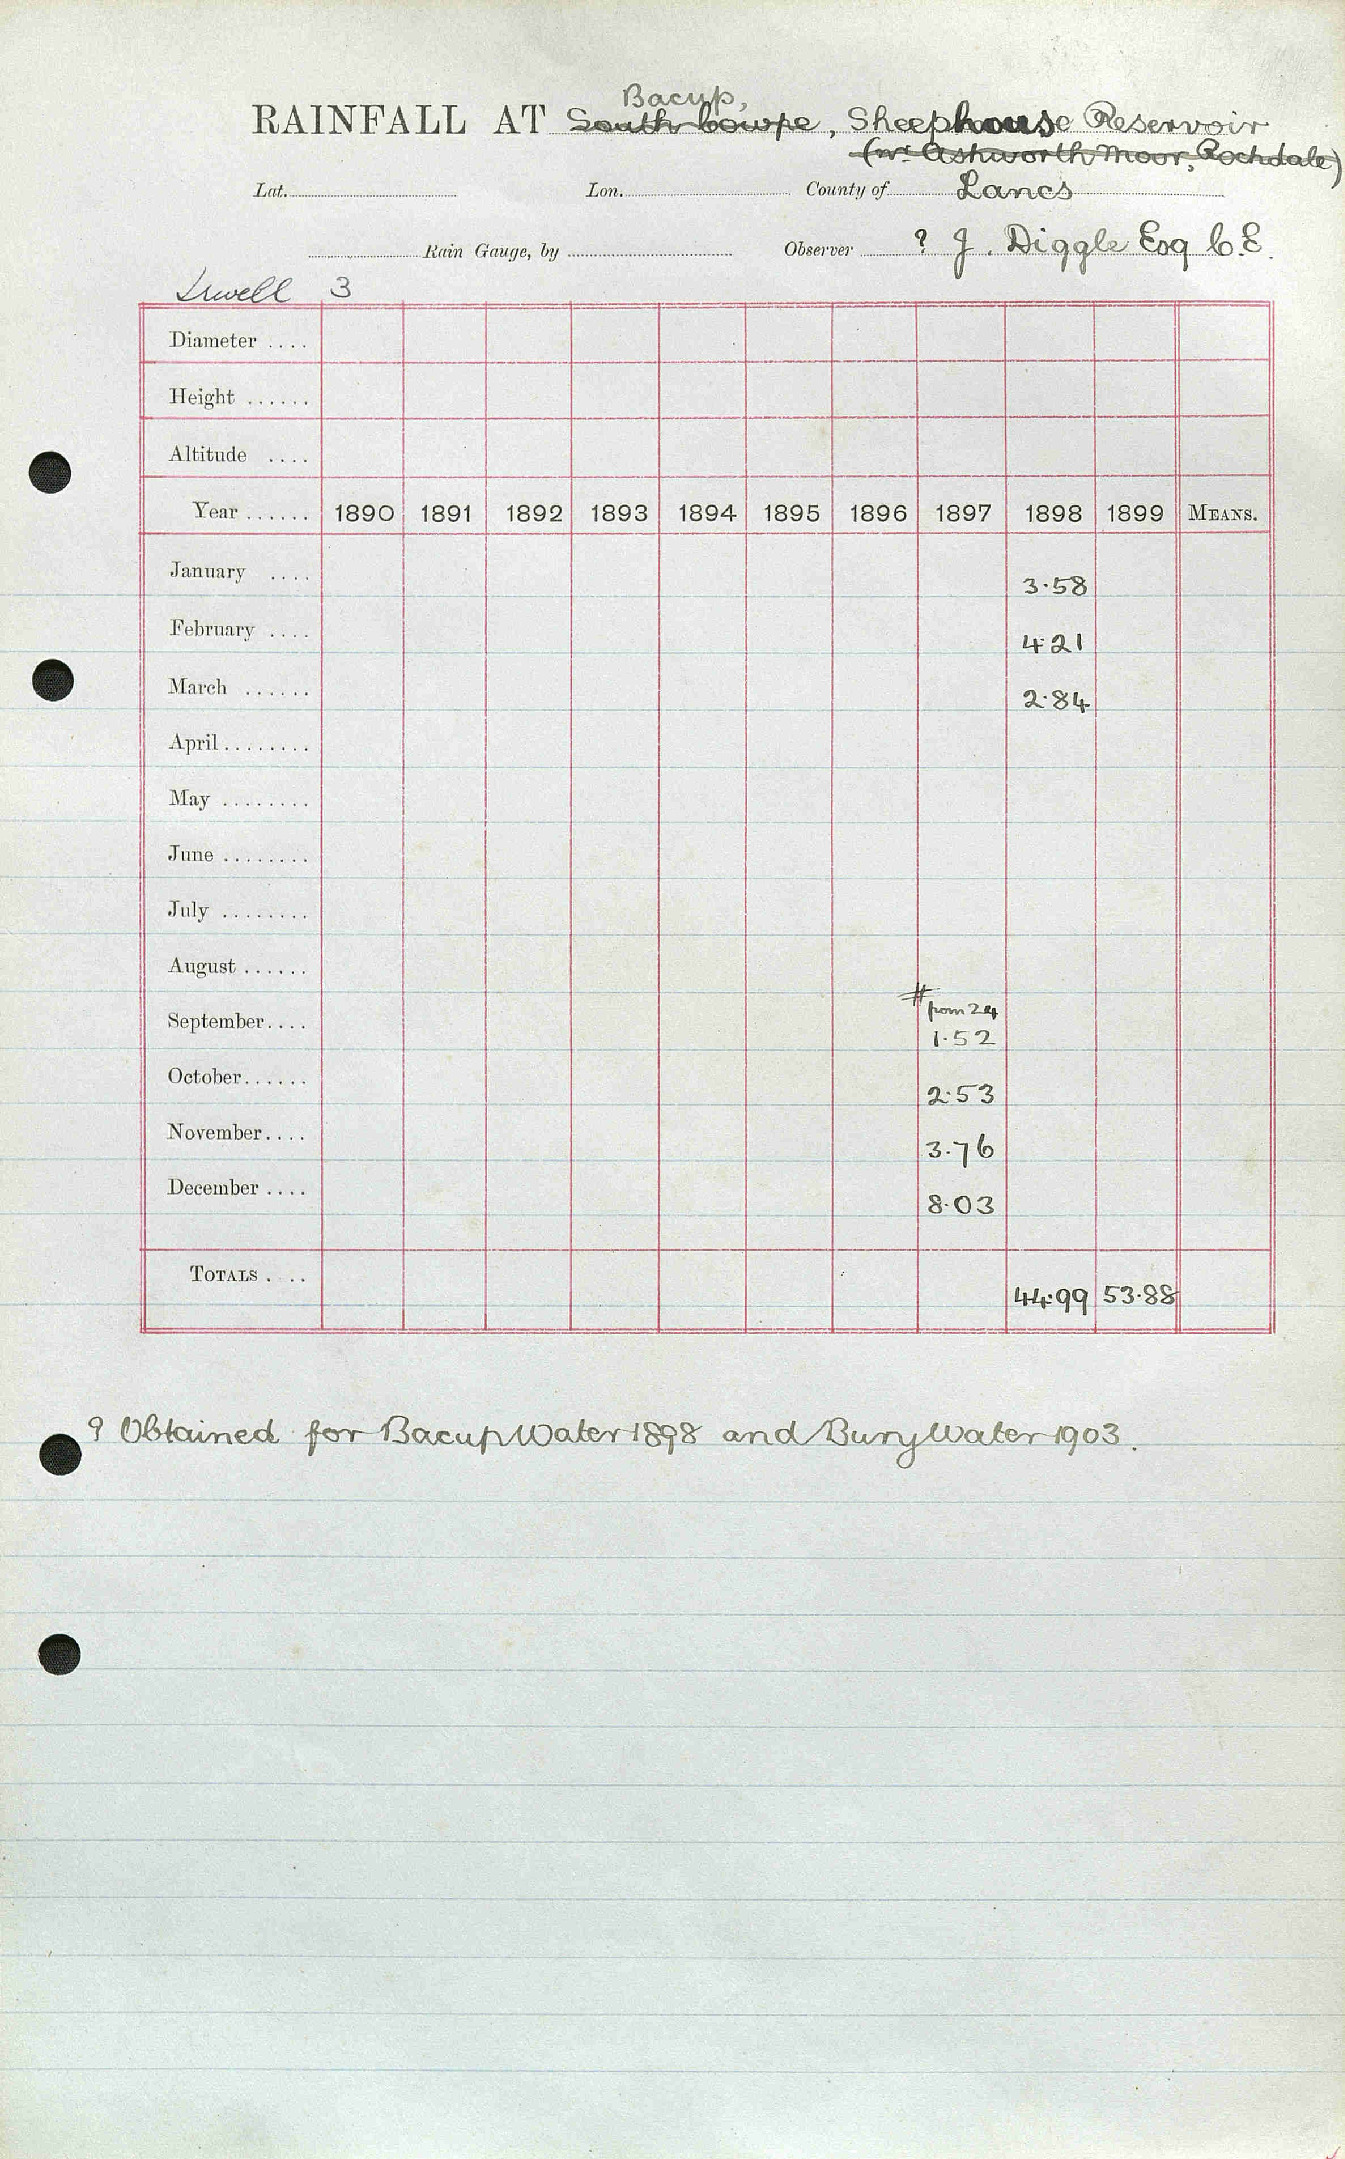 Bacup,
RAINFALL AT South Cowpe, Sheephouse Reservoir
(nr Ashworth Moor, Rochdale)
Lat. Lon. County of Lancs
Rain Gauge, by Observer ? J. Diggle Esq C.E.
Irwell 3
Diameter ....
Height ......
Altitude ....
Year ...... 1890 1891 1892 1893 1894 1895 1896 1897 1898 1899 MEANS.
January .... 3.58
February .... 4.21
March ...... 2.84
April ........
May ........
June ........
July ........
August ......
# from 24
September.... 1.52
October...... 2.53
November.... 3.76
December .... 8.03
TOTALS .... 44.99 53.88
? Obtained for Bacup Water 1898 and Bury Water 1903.